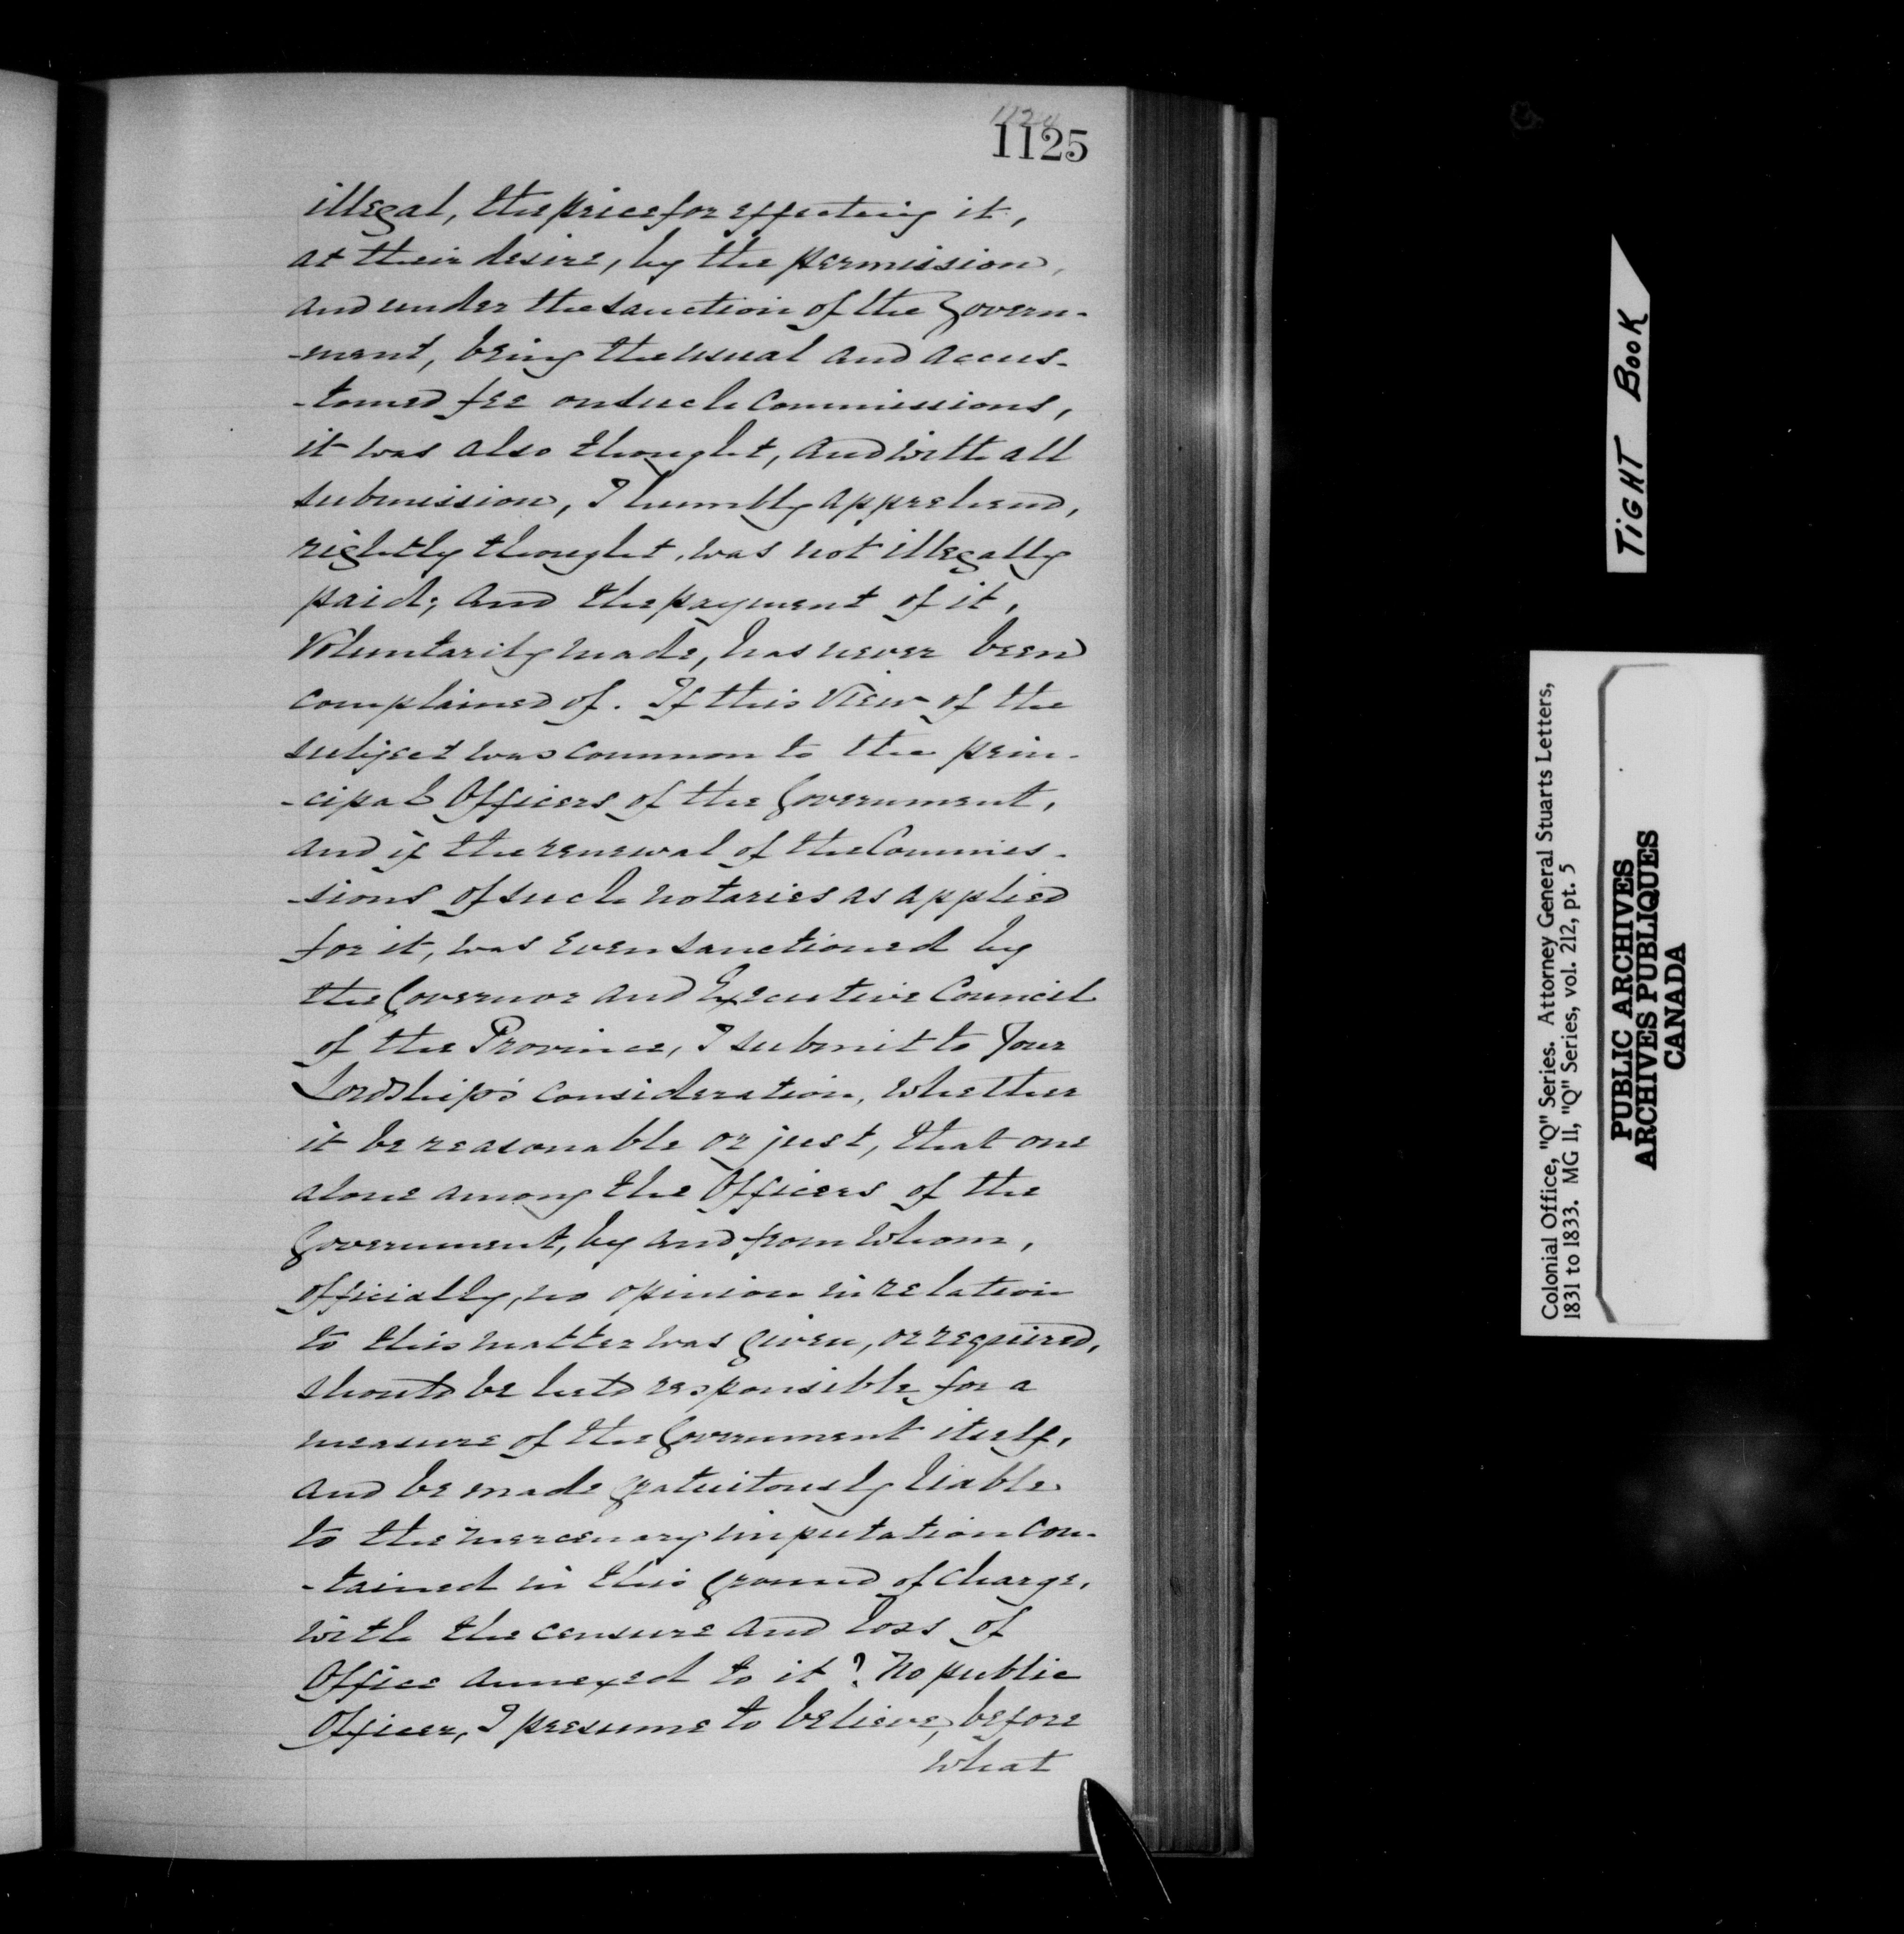 1124
1125
illegal, the price for effecting it,
at their desire, by the permission,
and under the sanction of the Govern-
-ment, being the usual and accus-
-tomed fee on such Commissions,
it was also thought, and with all
submission, I humbly apprehend,
rightly thought, was not illegally
paid; and the payment of it,
voluntarily made, has never been
complained of. If this view of the
subject was common to the prin-
-cipal Officers of the Government,
and if the renewal of the Commis-
-sions of such notaries as applied
for it, was even sanctioned by
the Governor and Executive Council
of the Province, I submit to Your
Lordship's consideration, whether
it be reasonable or just, that one
alone among the Officers of the
Government, by and from whom,
officially, no opinion in relation
to this matter was given, or required,
should be held responsible for a
measure of the Government itself,
and be made gratuitously liable
to the mercenary imputation con-
-tained in this ground of charge,
with the censure and loss of
Office annexed to it? No public
Officer, I presume to believe, before
what
TIGHT BOOK
Colonial Office, "Q" Series. Attorney General Stuarts Letters,
1831 to 1833. MG 11, "Q" Series, vol. 212, pt. 5
PUBLIC ARCHIVES
ARCHIVES PUBLIQUES
CANADA